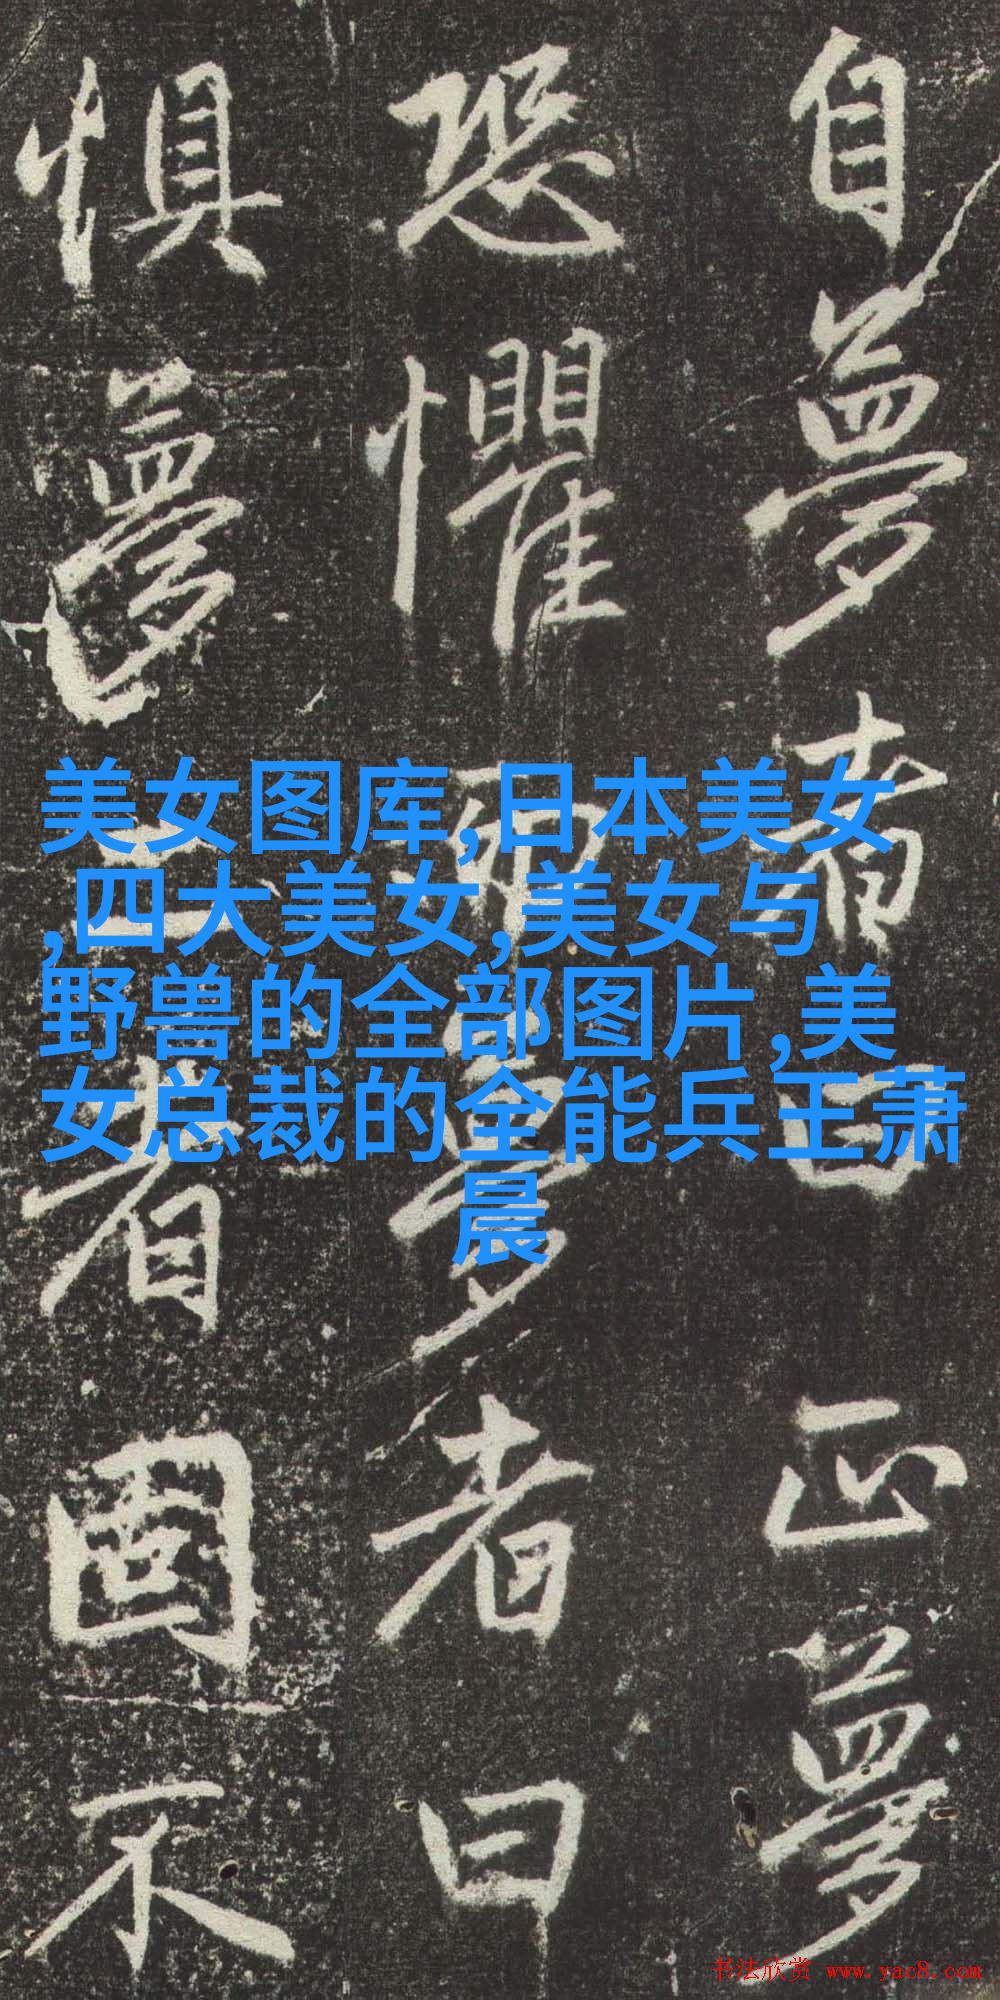 自夢者曰正夢
恐懼而夢者曰
惧夢者固不
美女图库,日本美女
,四大美女,美女与
野兽的全部图片,美
女总裁的全能兵王萧
晨
书法欣赏 www.yac8.com